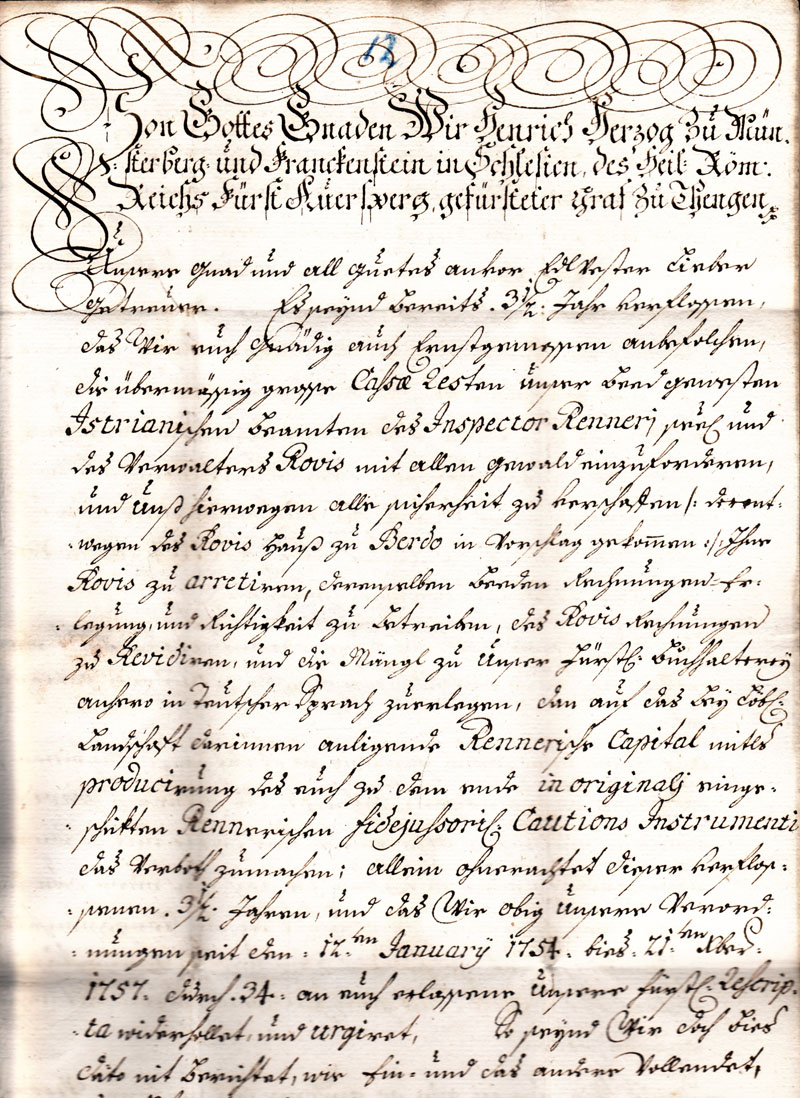 12
Von Gottes Gnaden Wir Henrich Herzog zu Mün-
sterberg und Franckenstein in Schlesien, des Heil: Röm:
Reichs Fürst Auersperg, gefürsteter Graf zu Thengen
Unsere gnad und all guetes anvor Edl Vester Lieber
getreuer. Es seynd bereits 3 1/2: Jahr verflossen,
das Wir euch gnädig auch Ernstgemessen anbefolchen,
die übermässig grosse Cassæ Resten unser beed gewesten
Istrianischen beamten des Inspector Rennerj seel: und
des Verwalters Rovis mit allen gewald einzuforderen,
und unß hierwegen alle sicherheit zu verschaffen /: derent-
wegen des Rovis Hauß zu Berdo in Vorschlag gekommen :/ Ihne
Rovis zu arretiren, derenselben beeden Rechnungen Er-
legung, und Richtigkeit zu betreiben, des Rovis Rechnungen
zu Revidiren, und die Mängl zu unser Fürstl: Buchhalterey
anhero in Teutscher Sprach zuerlegen, dan auf das bey Löbl:
Landschaft darinnen anligende Rennerische Capital mitls
producirung des euch zu dem ende in originalj einge-
schikten Rennerischen fidejussoris: Cautions Instrumenti
das Verboth zumachen; allein ohnerachtet dieser verflos-
senen 3 1/2: Jahren, und das Wir obig unsere Verord-
nungen seit den 12:ten January 1754 bies 21:ten Xber
1757 durch 34 an euch erlassene unsere Fürstl: Rescrip-
ta widerhollet, und urgiret, So seynd Wir doch bies
dato nit berichtet, wie Ein- und das andere Vollendet,